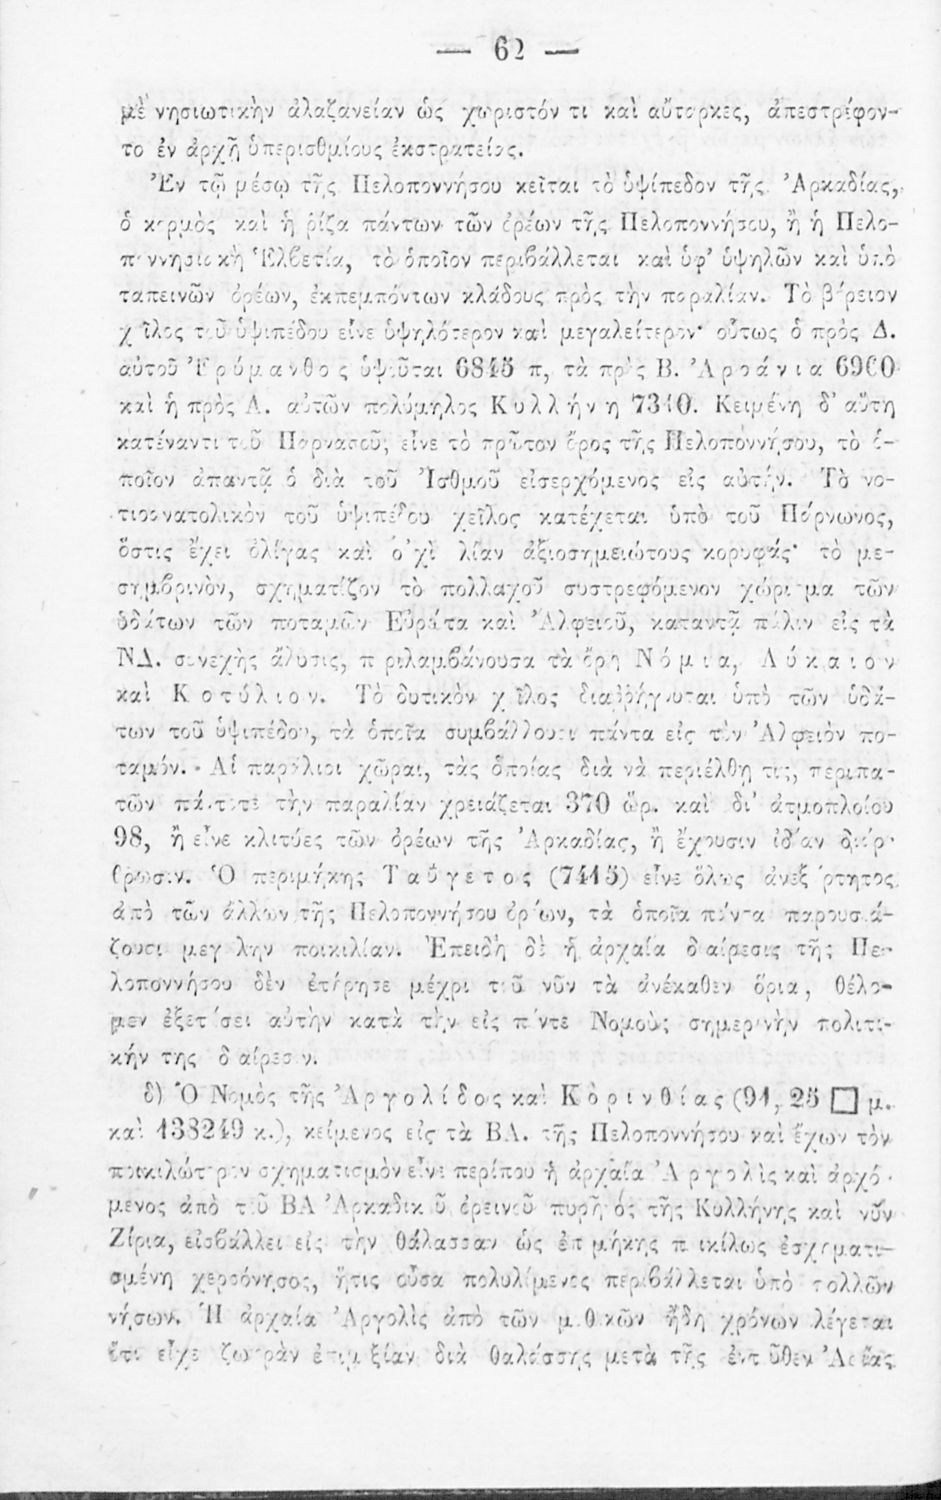 — 62 —
μὲ νησιωτικὴν ἀλαζανείαν ὡς χωριστόν τι καὶ αὔταρκες, ἀπεστρέφον-
το ἐν ἀρχῇ ὑπερισθμίους ἐκστρατείας.
Ἐν τῷ μέσῳ τῆς Πελοποννήσου κεῖται τὸ ὑψίπεδον τῆς Ἀρκαδίας,
ὁ κορμὸς καὶ ἡ ῥίζα πάντων τῶν ὀρέων τῆς Πελοποννήσου, ἢ ἡ Πελο-
ποννησιακὴ Ἑλβετία, τὸ ὁποῖον περιβάλλεται καὶ ὑφ’ ὑψηλῶν καὶ ὑπὸ
ταπεινῶν ὀρέων, ἐκπεμπόντων κλάδους πρὸς τὴν παραλίαν. Τὸ βόρειον
χεῖλος τοῦ ὑψιπέδου εἶνε ὑψηλότερον καὶ μεγαλείτερον· οὕτως ὁ πρὸς Δ.
αὐτοῦ Ἐρύμανθος ὑψοῦται 6845 π, τὰ πρὸς Β. Ἀροάνια 6960
καὶ ἡ πρὸς Α. αὐτῶν πολύμηλος Κυλλήνη 7340. Κειμένη δ’ αὕτη
κατέναντι τοῦ Παρνασοῦ, εἶνε τὸ πρῶτον ὄρος τῆς Πελοποννήσου, τὸ ὁ-
ποῖον ἀπαντᾷ ὁ διὰ τοῦ Ἰσθμοῦ εἰσερχόμενος εἰς αὐτήν. Τὸ νο-
τιοανατολικὸν τοῦ ὑψιπέδου χεῖλος κατέχεται ὑπὸ τοῦ Πάρνωνος,
ὅστις ἔχει ὀλίγας καὶ οὐχὶ λίαν ἀξιοσημειώτους κορυφάς· τὸ με-
σημβρινὸν, σχηματίζον τὸ πολλαχοῦ συστρεφόμενον χώρισμα τῶν
ὑδάτων τῶν ποταμῶν Εὐρώτα καὶ Ἀλφειοῦ, καταντᾷ πάλιν εἰς τὰ
ΝΔ. συνεχὴς ἅλυσις, περιλαμβάνουσα τὰ ὄρη Νόμια, Λύκαιον
καὶ Κοτύλιον. Τὸ δυτικὸν χεῖλος διαῤῥήγνυται ὑπὸ τῶν ὑδά-
των τοῦ ὑψιπέδου, τὰ ὁποῖα συμβάλλουσι πάντα εἰς τὸν Ἀλφειὸν πο-
ταμόν. - Αἱ παράλιοι χῶραι, τὰς ὁποίας διὰ νὰ περιέλθη τις, περιπα-
τῶν πάντοτε τὴν παραλίαν χρειάζεται 370 ὥρ. καὶ δι’ ἀτμοπλοίου
98, ἢ εἶνε κλιτύες τῶν ὀρέων τῆς Ἀρκαδίας, ἢ ἔχουσιν ἰδίαν διάρ-
θρωσιν. Ὁ περιμήκης Ταΰγετος (7415) εἶνε ὅλως ἀνεξάρτητος
ἀπὸ τῶν ἄλλων τῆς Πελοποννήσου ὀρέων, τὰ ὁποῖα πάντα παρουσιά-
ζουσι μεγάλην ποικιλίαν. Ἐπειδὴ δὲ ἡ ἀρχαία διαίρεσις τῆς Πε-
λοποννήσου δὲν ἐτήρησε μέχρι τοῦ νῦν τὰ ἀνέκαθεν ὅρια, θέλο-
μεν ἐξετάσει αὐτὴν κατὰ τὴν εἰς πέντε Νομοὺς σημερινὴν πολιτι-
κήν της διαίρεσιν.
δ) Ὁ Νομὸς τῆς Ἀργολίδος καὶ Κορινθίας (91, 25 □ μ.
καὶ 138249 κ.), κείμενος εἰς τὰ ΒΑ. τῆς Πελοποννήσου καὶ ἔχων τὸν
ποικιλώτερον σχηματισμὸν εἶνε περίπου ἡ ἀρχαία Ἀργολὶς καὶ ἀρχό-
μενος ἀπὸ τοῦ ΒΑ Ἀρκαδικοῦ ὀρεινοῦ πυρῆνος τῆς Κυλλήνης καὶ νῦν
Ζίρια, εἰσβάλλει εἰς τὴν θάλασσαν ὡς ἐπιμήκης ποικίλως ἐσχηματι-
σμένη χερσόνησος, ἥτις οὖσα πολυλίμενος περιβάλλεται ὑπὸ πολλῶν
νήσων. Ἡ ἀρχαία Ἀργολὶς ἀπὸ τῶν μυθικῶν ἤδη χρόνων λέγεται
ὅτι εἶχε ζωηρὰν ἐπιμιξίαν διὰ θαλάσσης μετὰ τῆς ἐντεῦθεν Ἀσίας